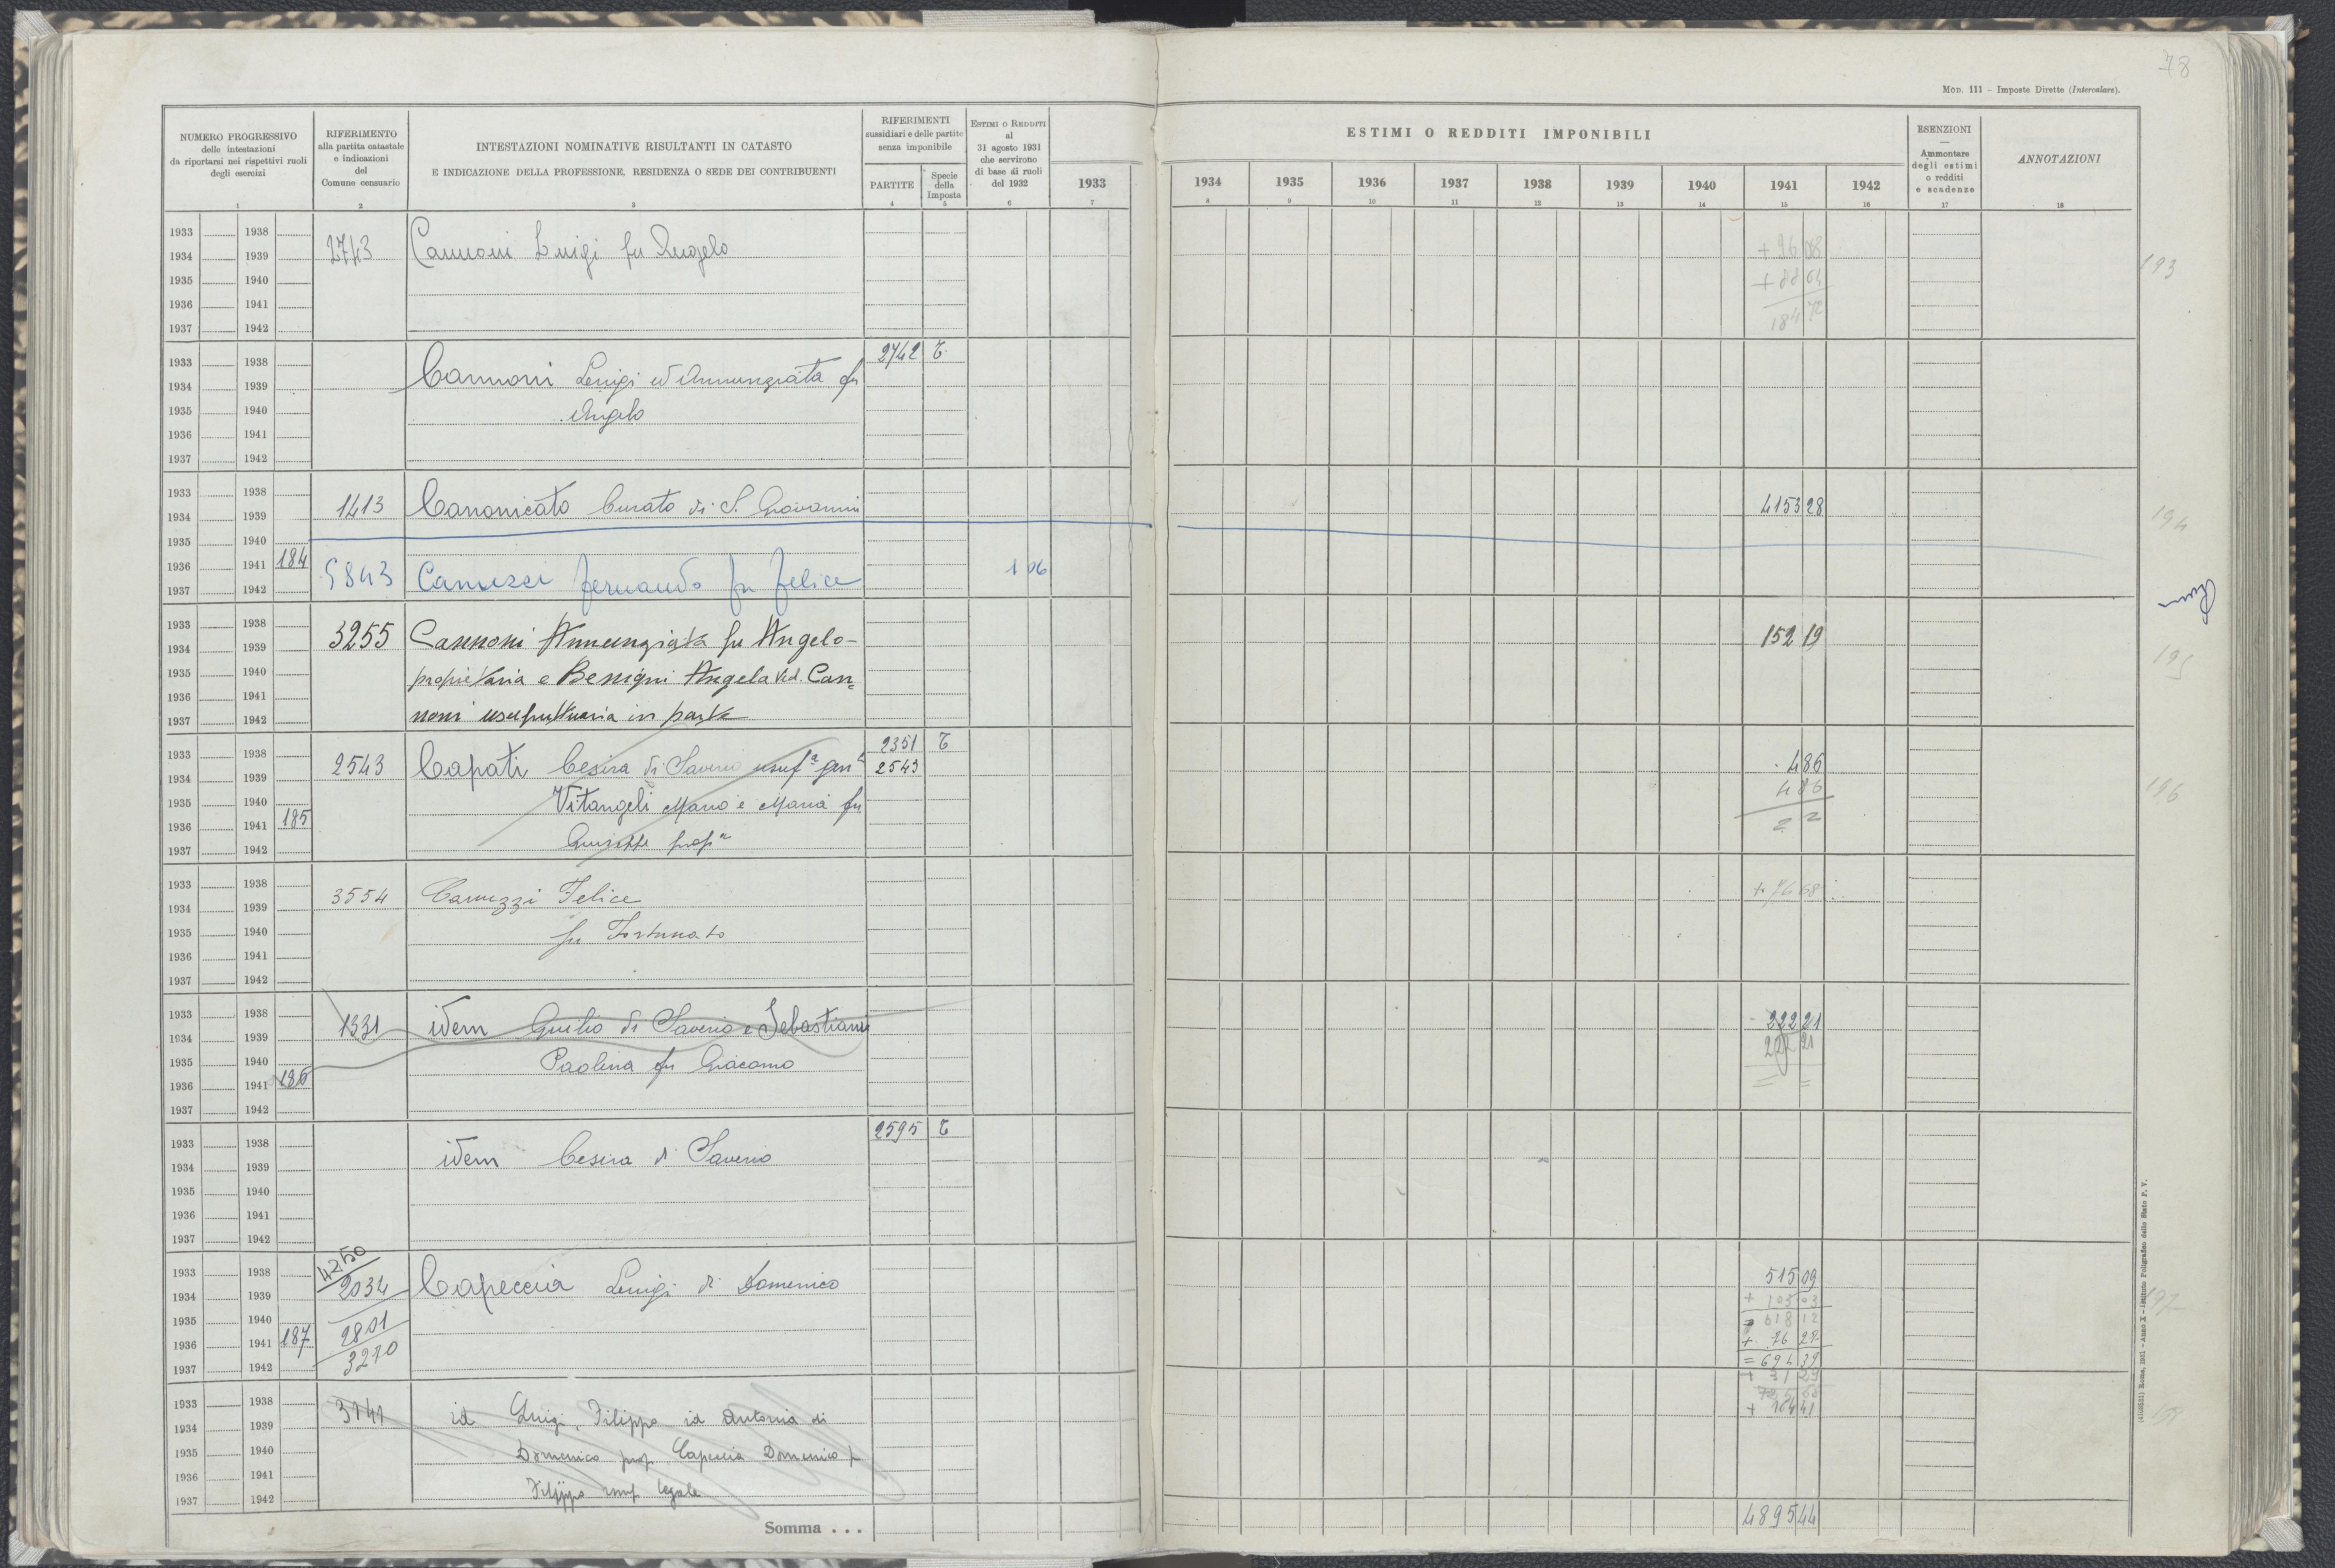 78
MOD. 111 – Imposte Dirette (Intercalare).
NUMERO PROGRESSIVO
delle intestazioni
da riportarsi nei rispettivi ruoli
degli esercizi
1
RIFERIMENTO
alla partita catastale
e indicazioni
del
Comune censuario
2
INTESTAZIONI NOMINATIVE RISULTANTI IN CATASTO
E INDICAZIONE DELLA PROFESSIONE, RESIDENZA O SEDE DEI CONTRIBUENTI
3
RIFERIMENTI
sussidiari e delle partite
senza imponibile
PARTITE
4
Specie
della
Imposta
5
ESTIMI O REDDITI
al
31 agosto 1931
che servirono
di base ai ruoli
del 1932
6
1933
7
ESTIMI O REDDITI IMPONIBILI
1934 1935 1936 1937 1938 1939 1940 1941 1942
8 9 10 11 12 13 14 15 16
ESENZIONI
—
Ammontare
degli estimi
o redditi
e scadenze
17
ANNOTAZIONI
18
1933 1938
1934 1939 2743 Cannoni Luigi fu Angelo + 96 08 193
1935 1940 + 88 64
1936 1941 184 72
1937 1942
1933 1938 2742 T.
1934 1939 Cannoni Luigi ed Annunziata fu
1935 1940 Angelo
1936 1941
1937 1942
1933 1938
1934 1939 1413 Canonicato Curato di S. Giovanni 4153 28 194
1935 1940
1936 1941 184
1937 1942 5843 Canuzzi Fernando fu Felice 1 06
1933 1938
1934 1939 3255 Cannoni Annunziata fu Angelo- 152 19
1935 1940 proprietaria e Benigni Angela Ved. Can= 195
1936 1941
1937 1942 noni usufruttuaria in parte
1933 1938 2351 T
1934 1939 2543 Capati Cesira di Saverio usuf.ª gen.le 2543 4 86
1935 1940 Vitangeli Mario e Maria fu 4 86 196
1936 1941 185
1937 1942 Giuseppe prop.ri
1933 1938
1934 1939 3554 Canuzzi Felice + 76 68
1935 1940 fu Fortunato
1936 1941
1937 1942
1933 1938
1934 1939 1331 idem Giulio di Saverio e Sebastiani 222 21
1935 1940 Paolina fu Giacomo 222 21
1936 1941 186 = =
1937 1942
1933 1938 2595 T
1934 1939 idem Cesira di Saverio
1935 1940
1936 1941
1937 1942
4250
1933 1938 515 09
1934 1939 2034 Capeccia Luigi di Domenico + 103 03 197
1935 1940 2801 = 618 12
1936 1941 187 + 76 27
1937 1942 3270 = 694 39
+ 31 29
1933 1938 3141
1934 1939 id Luigi, Filippo id Antonia di + 164 41
1935 1940
1936 1941 Domenico prop. Capeccia Domenico f
1937 1942 Filippo usuf. legale
Somma . . . 4895 44
(4100521) Roma, 1931 – Anno X – Istituto Poligrafico dello Stato P. V.